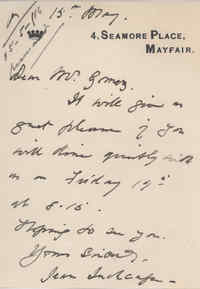 15th May.
4, SEAMORE PLACE,
MAYFAIR.
15-5-16
Dear Mr.
It will give us
great pleasure if you
will dine quietly with
us on Friday 19th
at 8.15.
Hoping to see you.
Yours Sincerely
Jean